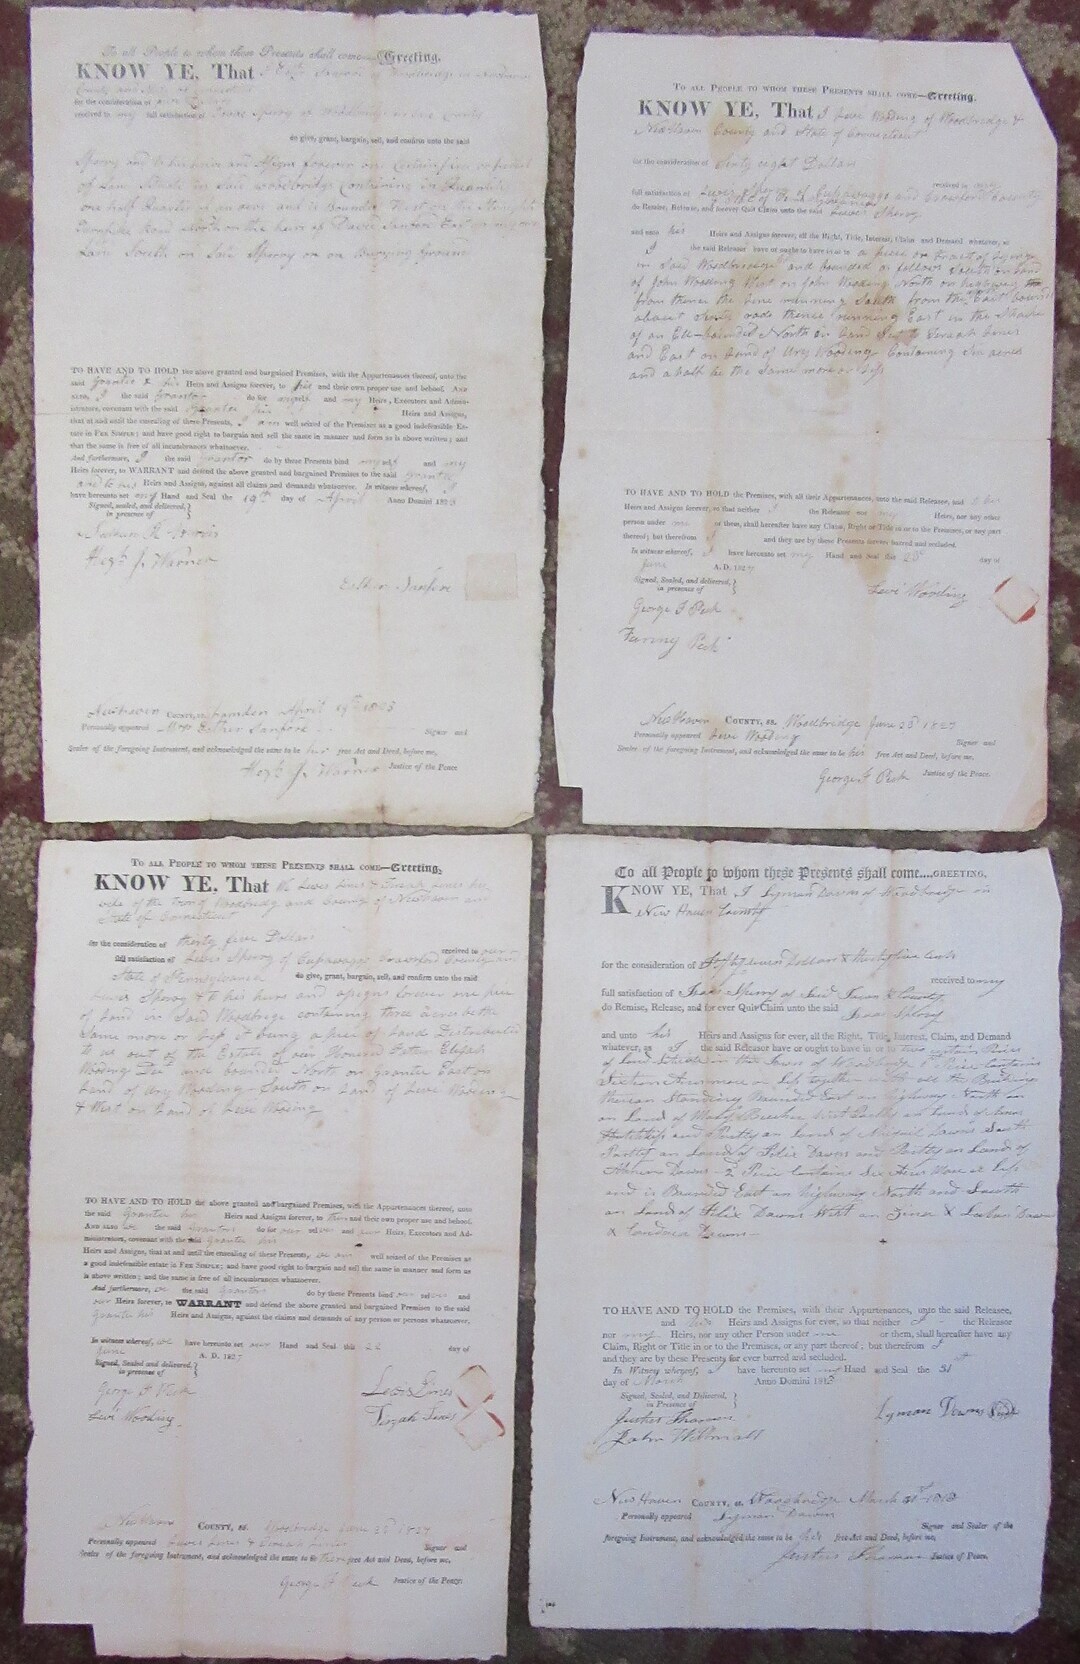 To all People to whom these Presents shall come—Greeting.
KNOW YE, That I Esther Sanford of Woodbridge in New Haven
County and State of Connecticut
for the consideration of five Dollars
received to my full satisfaction of Isaac Sperry of Woodbridge
do give, grant, bargain, sell, and confirm unto the said
Sperry and to his heirs and assigns forever one Certain piece or parcel
of Land Situate in Said Woodbridge Containing in Quantity
one half Quarter of an acre and is Bounded West on the
Turnpike Road North on the heirs of Sanford East on my own
Land South on Said Sperry or on Burying Ground
TO HAVE AND TO HOLD the above granted and bargained Premises, with the Appurtenances thereof, unto the
said Grantee & his Heirs and Assigns forever, to his and their own proper use and behoof. AND
ALSO, I the said Grantor do for myself and my Heirs, Executors and Admin-
istrators, covenant with the said Grantee his Heirs and Assigns,
that at and until the ensealing of these Presents, I am well seized of the Premises as a good indefeasible Es-
tate in FEE SIMPLE; and have good right to bargain and sell the same in manner and form as is above written; and
that the same is free of all incumbrances whatsoever.
And furthermore, I the said Grantor do by these Presents bind myself and my
Heirs forever, to WARRANT and defend the above granted and bargained Premises to the said Grantee
and to his Heirs and Assigns, against all claims and demands whatsoever. In witness whereof, I
have hereunto set my Hand and Seal the 19th day of April Anno Domini 1823
Signed, sealed, and delivered,
in presence of
Hezh J. Warner
Esther Sanford
New haven COUNTY, ss. Hamden April 19th 1823
Personally appeared Mrs Esther Sanford Signer and
Sealer of the foregoing Instrument, and acknowledged the same to be her free Act and Deed, before me,
Hezh J. Warner Justice of the Peace
TO ALL PEOPLE TO WHOM THESE PRESENTS SHALL COME—Greeting.
KNOW YE, That I Levi Wooding of Woodbridge &
New Haven County and State of Connecticut
for the consideration of Sixty eight Dollars
received to my
full satisfaction of Lewis Sperry of Cussawago and Crawford County
State of Pennsylvania
do Remise, Release, and forever Quit Claim unto the said Lewis Sperry
and unto his Heirs and Assigns forever, all the Right, Title, Interest, Claim and Demand whatever, as
I the said Releasor have or ought to have in or to a piece or Tract of Land
in Said Woodbridge and bounded as follows South on Land
of John Wooding West on John Wooding North on highway
from thence the line running South from the East bound
about Sixty rods thence running East in the Shape
of an Ell—bounded North on Land Set to Tirzah Lines
and East on Land of Ary Wooding Containing Six acres
and a half be the Same more or less
TO HAVE AND TO HOLD the Premises, with all their Appurtenances, unto the said Releasee, and his
Heirs and Assigns forever, so that neither I the Releasor nor my Heirs, nor any other
person under me or them, shall hereafter have any Claim, Right or Title in or to the Premises, or any part
thereof; but therefrom I and they are by these Presents forever barred and secluded.
In witness whereof, I have hereunto set my Hand and Seal this 23d day of
June A.D. 1827
Signed, Sealed, and delivered,
in presence of
Levi Wooding
George F Peck
Fanny Peck
New Haven COUNTY, ss. Woodbridge June 23d 1827
Personally appeared Levi Wooding Signer and
Sealer of the foregoing Instrument, and acknowledged the same to be his free Act and Deed, before me,
George F Peck Justice of the Peace.
TO ALL PEOPLE TO WHOM THESE PRESENTS SHALL COME—Greeting,
KNOW YE, That We Lewis Lines & Tirzah Lines his
wife of the Town of Woodbridge and County of New Haven and
State of Connecticut
for the consideration of thirty five Dollars
received to our
full satisfaction of Lewis Sperry of Cussawago Crawford County and
State of Pennsylvania do give, grant, bargain, sell, and confirm unto the said
Lewis Sperry & to his heirs and assigns forever one piece
of Land in Said Woodbridge containing three acres be the
Same more or less it being a piece of Land Distributed
to us out of the Estate of our Honoured Father Elijah
Wooding Decd and bounded North on Grantee East on
Land of Ary Wooding—South on Land of Levi Wooding
& West on Land of Levi Wooding
TO HAVE AND TO HOLD the above granted and bargained Premises, with the Appurtenances thereof, unto
the said Grantee his Heirs and Assigns forever, to them and their own proper use and behoof.
AND ALSO we the said Grantors do for our selves and our Heirs, Executors and Ad-
ministrators, covenant with the said Grantee his
Heirs and Assigns, that at and until the ensealing of these Presents, we are well seized of the Premises as
a good indefeasible estate in FEE SIMPLE; and have good right to bargain and sell the same in manner and form as
is above written; and the same is free of all incumbrances whatsoever.
And furthermore, we the said Grantors do by these Presents bind our selves and
our Heirs forever, to WARRANT and defend the above granted and bargained Premises to the said
Grantee his Heirs and Assigns, against the claims and demands of any person or persons whatsoever.
In witness whereof, we have hereunto set our Hand and Seal this 22 day of
June A. D. 1827
Signed, Sealed and delivered,
in presence of
George F Peck
Levi Wooding
Lewis Lines
Tirzah Lines
New Haven COUNTY, ss. Woodbridge June 22d 1827
Personally appeared Lewis Lines & Tirzah Lines Signer and
Sealer of the foregoing Instrument, and acknowledged the same to be their free Act and Deed, before me,
George F Peck Justice of the Peace.
To all People to whom these Presents shall come....GREETING.
KNOW YE, That I Lyman Downs of Woodbridge in
New Haven County
for the consideration of Dollars & thirty five Cents
received to my
full satisfaction of Isaac Sperry of Said Town & County
do Remise, Release, and for ever Quit Claim unto the said Isaac Sperry
and unto his Heirs and Assigns for ever, all the Right, Title, Interest, Claim and Demand
whatever, as I the said Releasor have or ought to have in or to two certain Pieces
of Land Situate in the Town of Woodbridge 1st Piece Contains
Sixteen Acres more or less together with all the Buildings
thereon Standing Bounded East on highway North
on Land of Beecher West Partly on Land of Amos
Hotchkiss and Partly on Land of Downs South
Partly on Land of Felix Downs and Partly on Land of
Downs—2 Piece Contains Six Acres More or less
and is Bounded East on highway North and South
on Land of Felix Downs West on Zina & Downs
& Downs—
TO HAVE AND TO HOLD the Premises, with their Appurtenances, unto the said Releasee,
and his Heirs and Assigns for ever, so that neither I the Releasor
nor my Heirs, nor any other Person under me or them, shall hereafter have any
Claim, Right or Title in or to the Premises, or any part thereof; but therefrom I
and they are by these Presents for ever barred and secluded.
In Witness whereof, I have hereunto set my Hand and Seal the 31st
day of March Anno Domini 1813
Signed, Sealed, and Delivered,
in Presence of
Justus Thomas
Lyman Downs Seal
New Haven COUNTY, ss. Woodbridge March 31st 1813
Personally appeared Lyman Downs
Signer and Sealer of the
foregoing Instrument, and acknowledged the same to be his free Act and Deed, before me,
Justus Thomas Justice of Peace.